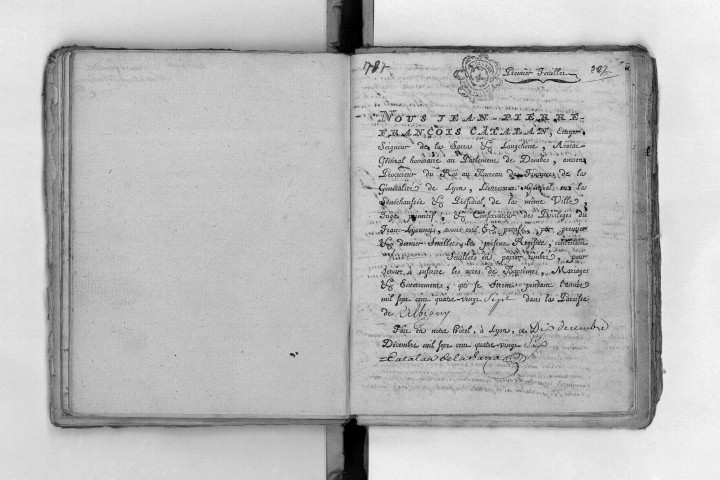 787
Premier feuillet 387
NOUS JEAN-PIERRE-
FRANÇOIS CATALAN, Ecuyer,
Seigneur de la Sarra & Longchene, Avocat
Général honoraire au Parlement de Dombes, ancien
Procureur du Roi au Bureau des Finances de la
Généralité de Lyon, Lieutenant Général en la
Sénéchaussée & Présidial de la même Ville,
Juge, primitif, & Conservateur des Privileges du
Franc-Lyonnois, avons coté & paraphé, par premier
& dernier feuillets, le présent Registre, contenant
feuillets en papier timbré, pour
servir à inscrire les actes de Baptêmes, Mariages
& Enterremens, qui se feront pendant l'année
mil sept cent quatre-vingt sept dans la Paroisse
de Albigny
Fait en notre Hôtel, à Lyon, ce Dix decembre
Décembre mil sept cent quatre-vingt six
Catalan de la Sarra